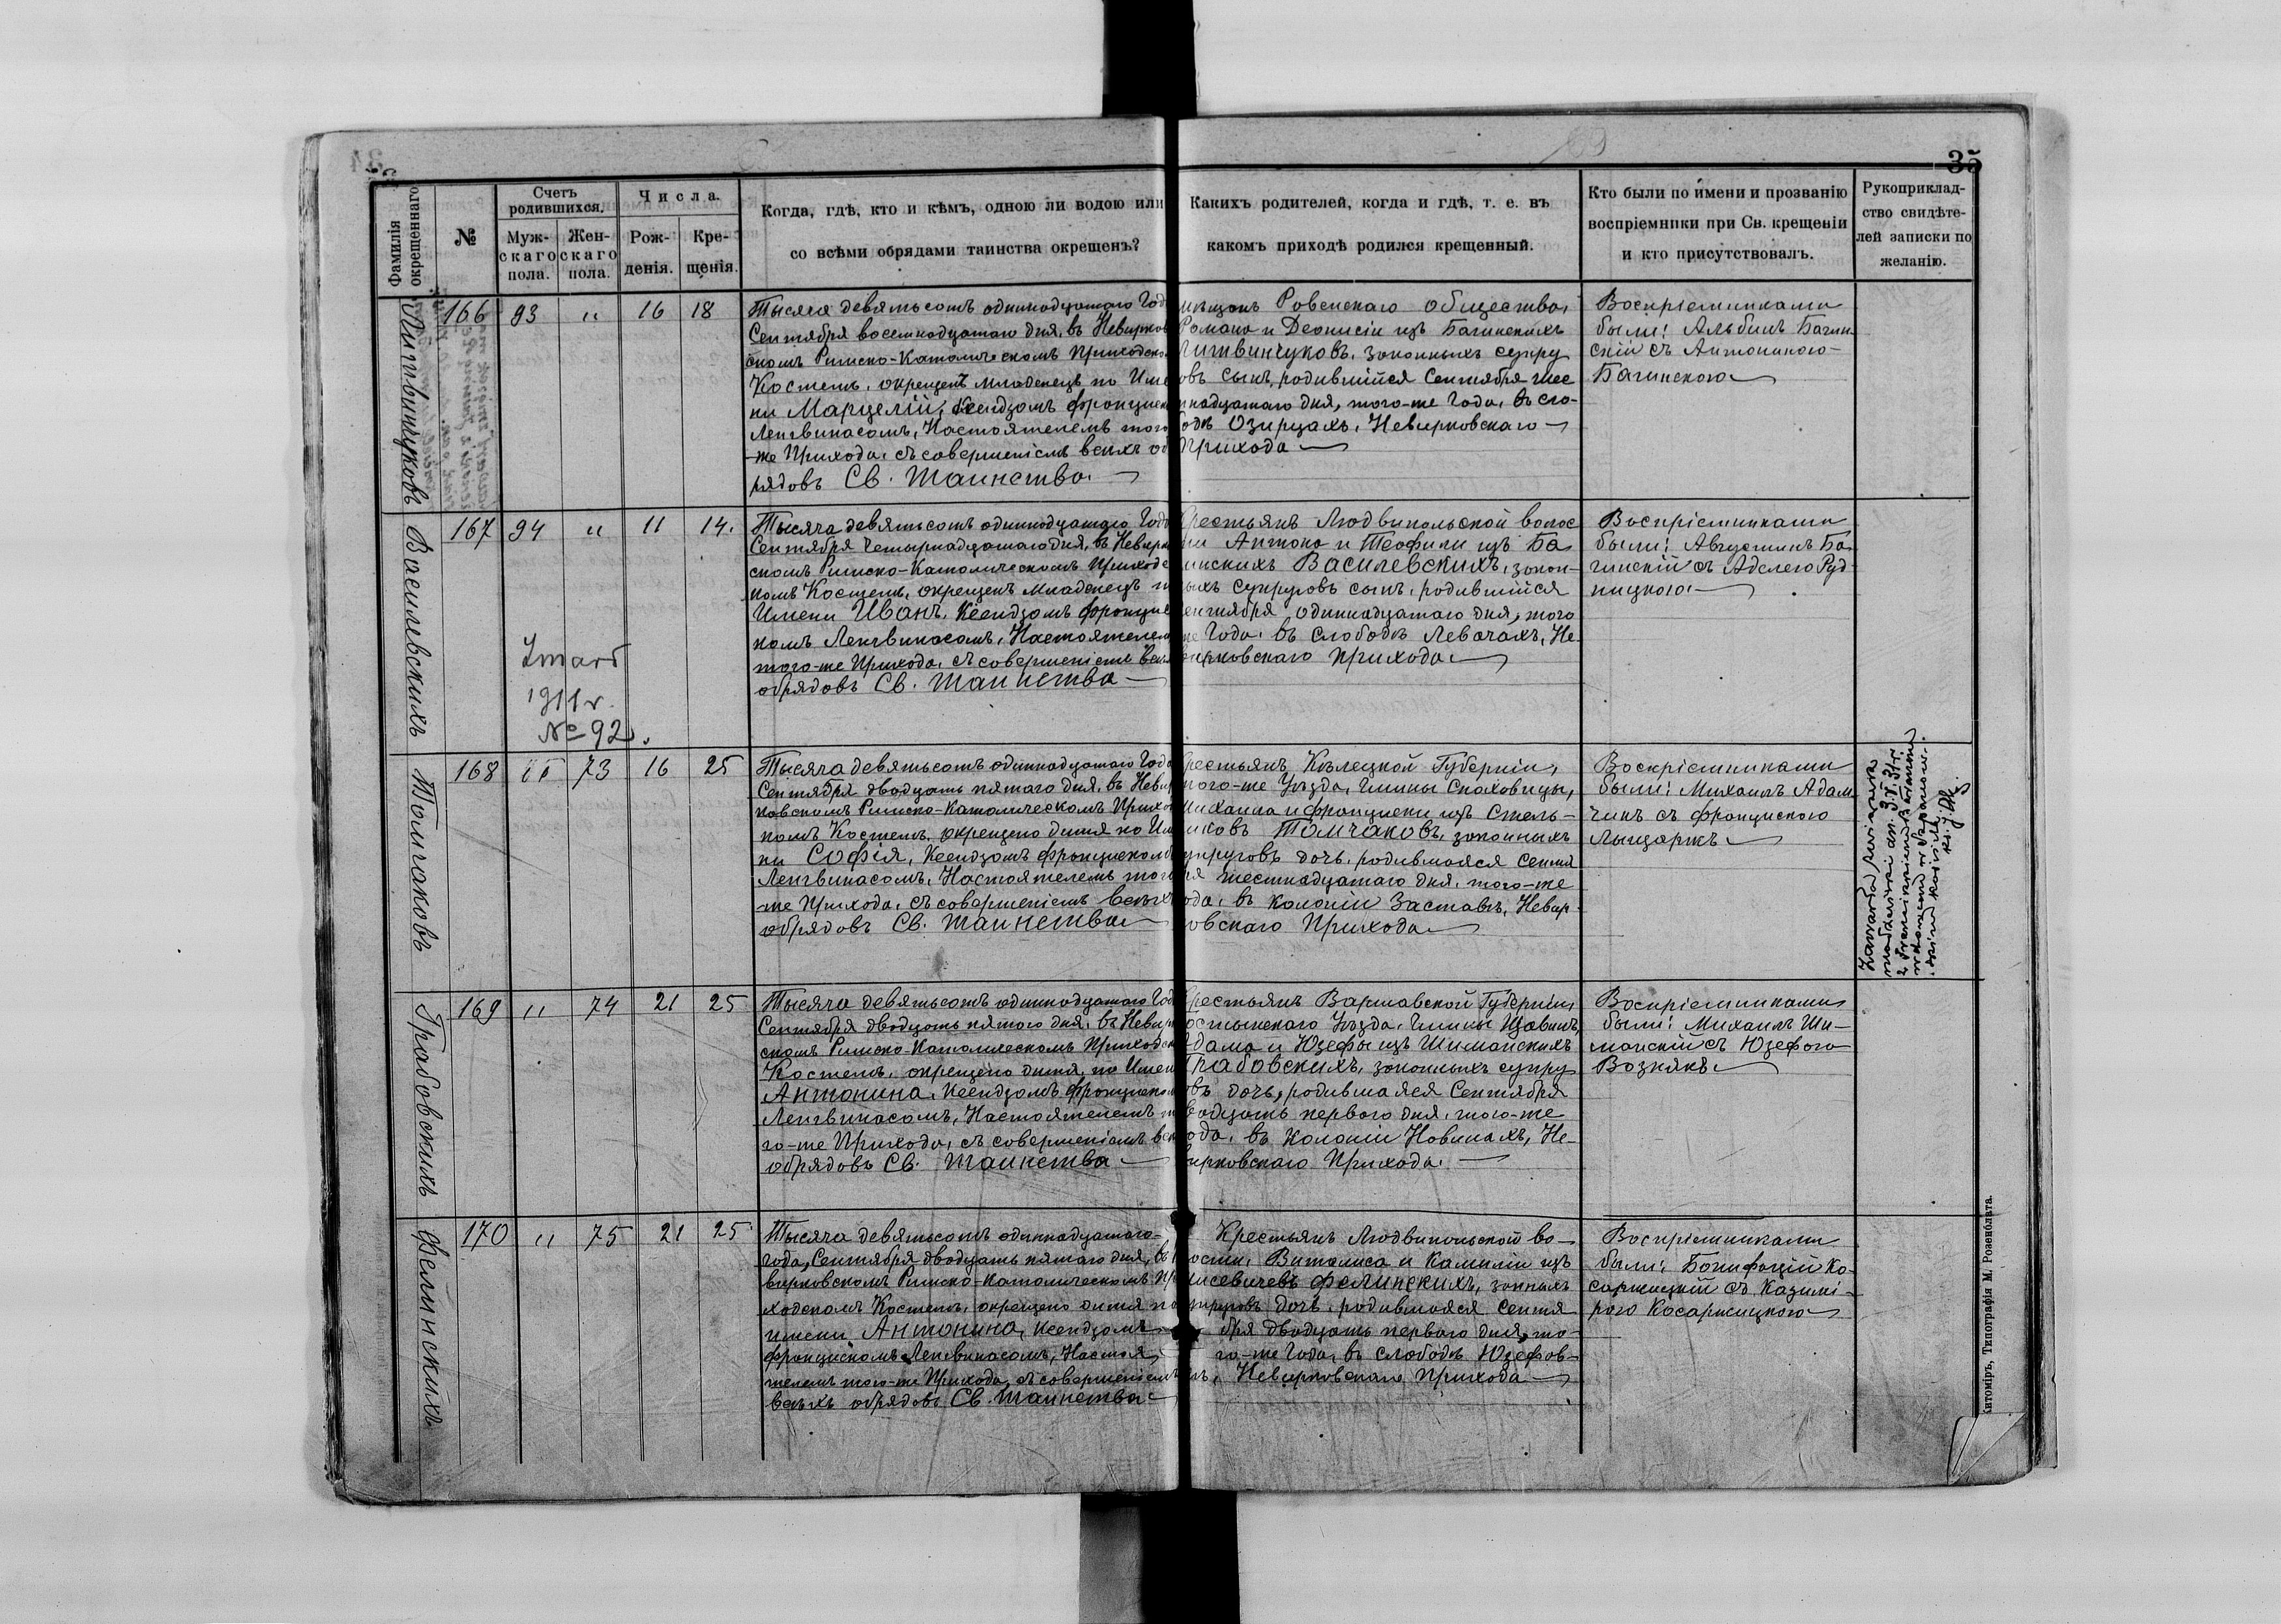 35
Фамилія окрещеннаго
№
Счетъ родившихся.
Муж-скаго пола.
Жен-скаго пола.
Числа.
Рож-денія.
Кре-щенія.
Когда, гдѣ, кто и кѣмъ, одною ли водою или
со всѣми обрядами таинства окрещенъ?
Какихъ родителей, когда и гдѣ, т. е. въ
какомъ приходѣ родился крещенный.
Кто были по имени и прозванію
воспріемники при Св. крещеніи
и кто присутствовалъ.
Рукоприклад-
ство свидѣте-
лей записки по
желанію.
Литвинчуковъ
166 93 " 16 18
Тысяча девятьсотъ одиннадцатаго Год
Сентября восемнадцатаго дня, въ Невирков
скомъ Римско-Католическомъ Приходско
Костелѣ, окрещенъ младенецъ по Име
ни Марцелій, Ксендзомъ Францишк
Ленгвинасомъ, Настоятелемъ того
же Прихода, съ совершеніемъ всѣхъ об
рядовъ Св. Таинства.
мѣщанъ Ровенскаго Общества,
Романа и Деонисіи изъ Багинскихъ
Литвинчуковъ, законныхъ супру
овъ сынъ, родившійся Сентября шес
надцатаго дня, того-же Года, въ сло-
одѣ Озирцахъ, Невирковскаго
Прихода
Воспріемниками
были: Альбинъ Багин-
скій съ Антониною
Багинскою
Василевскихъ
167 94 " 11 14.
Тысяча девятьсотъ одиннадцатаго Года
Сентября четырнадцатаго дня, въ Невирк
скомъ Римско-Католическомъ Приходс
комъ Костелѣ, окрещенъ младенецъ п
Имени Иванъ, Ксендзомъ Францишк
комъ Ленгвинасомъ, Настоятелем
того-же Прихода, съ совершеніемъ всѣх
обрядовъ Св. Таинства
рестьянъ Людвипольской волос
ти Антона и Теофили изъ Ба
гинскихъ Василевскихъ, закон-
ыхъ супруговъ сынъ, родившійся
ентября одиннадцатаго дня, того
же Года, въ слободѣ Левачахъ, Не-
вирковскаго Прихода
Воспріемниками
были: Августинъ Ба-
гинскій съ Аделею Руд-
ницкою
Zmarł
1911 r.
№ 92.
Толчаковъ
168 " 73 16 25
Тысяча девятьсотъ одиннадцатаго Года
Сентября двадцать пятаго дня, въ Невир
ковскомъ Римско-Католическомъ Прихо
комъ Костелѣ, окрещено дитя по Им
ни Софія, Ксендзомъ Францишкомъ
Ленгвинасомъ, Настоятелемъ того
же Прихода, съ совершеніемъ всѣхъ
обрядовъ Св. Таинства
рестьянъ Кѣлецкой Губерніи,
того-же Уѣзда, Гмины Снаховицы,
Михаила и Францишки изъ Стель-
иковъ Толчаковъ, законныхъ
супруговъ дочь, родившаяся Сентя
ря шестнадцатаго дня, того-же
ода, въ колоніи Заставѣ, Невир-
овскаго Прихода
Воспріемниками
были: Михаилъ Адам-
чикъ съ Францишкою
Лыцаркъ
Грабовскихъ
169 " 74 21 25
Тысяча девятьсотъ одиннадцатаго Год
Сентября двадцать пятаго дня, въ Невир
скомъ Римско-Католическомъ Приходск
Костелѣ, окрещено дитя по Имен
Антонина, Ксендзомъ Францишком
Ленгвинасомъ, Настоятелемъ т
го-же Прихода, съ совершеніемъ всѣ
обрядовъ Св. Таинства
рестьянъ Варшавской Губерніи,
остынскаго Уѣзда, Гмины Щавинъ,
Адама и Юзефы изъ Шиманскихъ
Грабовскихъ, законныхъ супру
овъ дочь, родившаяся Сентября
вадцать перваго дня, того-же
ода, въ колоніи Новинахъ, Не-
вирковскаго Прихода.
Воспріемниками
были: Михаилъ Ши-
манскій съ Юзефою
Вознякъ
Фелинскихъ
170 " 75 21 25
Тысяча девятьсотъ одиннадцатаго
Года, Сентября двадцать пятаго дня, въ Н
вирковскомъ Римско-Католическомъ Пр
ходскомъ Костелѣ, окрещено дитя по
имени Антонина, Ксендзомъ
Францишкомъ Ленгвинасомъ, Настоя
телемъ того-же Прихода, съ совершеніемъ
всѣхъ обрядовъ Св. Таинства
Крестьянъ Людвипольской во-
лости, Виталиса и Камиліи изъ
Фелинскихъ, законныхъ
супруговъ дочь, родившаяся Сентя
бря двадцать перваго дня, то-
го-же Года, въ слободѣ Юзефов-
кѣ, Невирковскаго Прихода
Воспріемниками
были: Бонифацій Ко-
саржицкій съ Казимі-
рою Косаржицкою
Житомiръ, Типографія М. Розенблата.